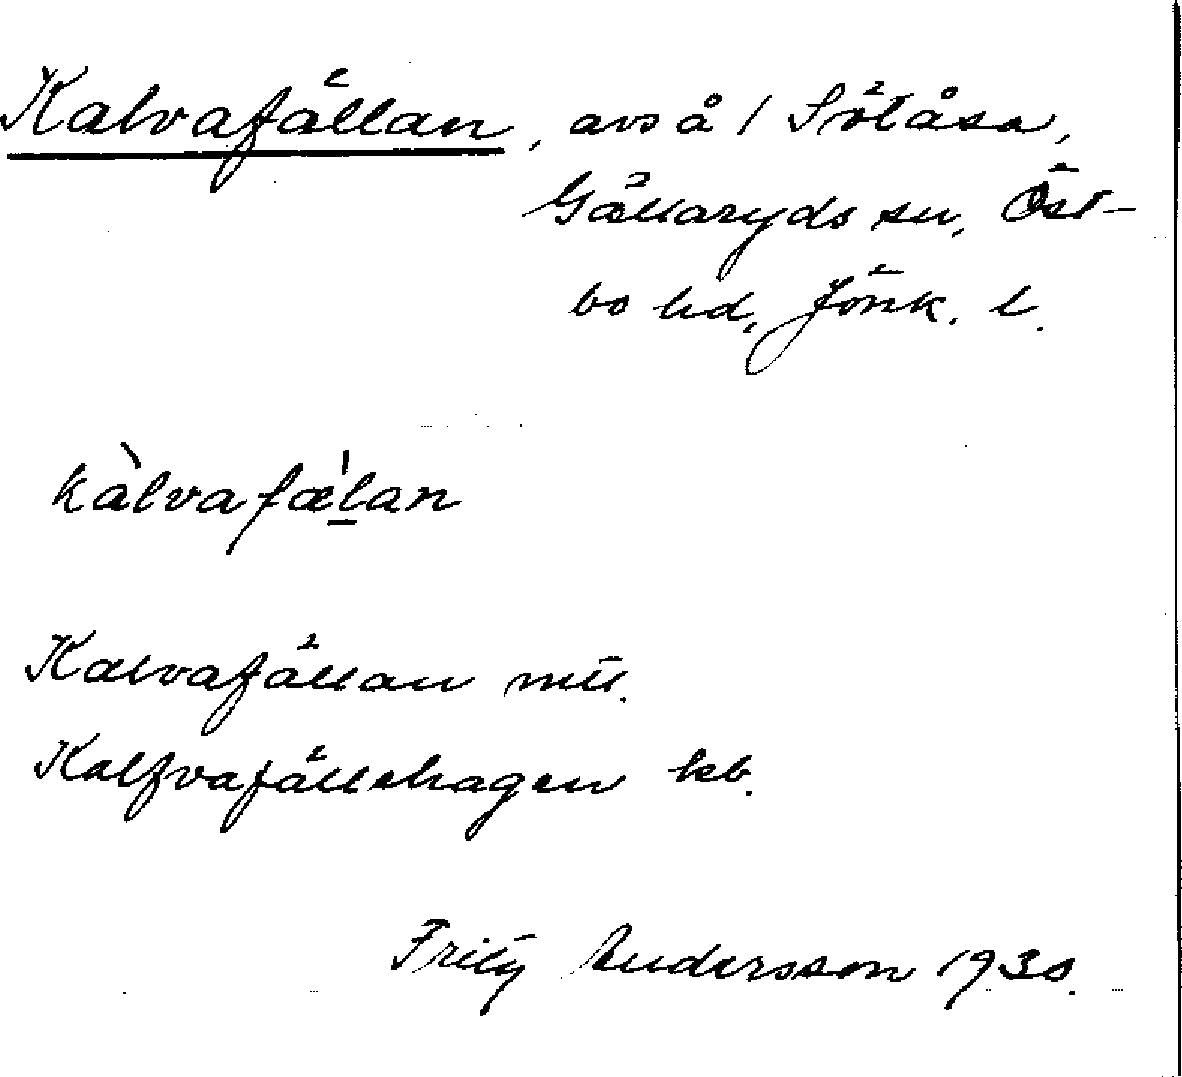 Kalvafällan, avs å / Sölåsa,
Gällaryds sn, Öst-
bo hd, Jönk. l.
kàlvafæ̀lan
Kalvafällan mtl.
Kalfvafällehagen kb.
Fritz Andersson 1930.